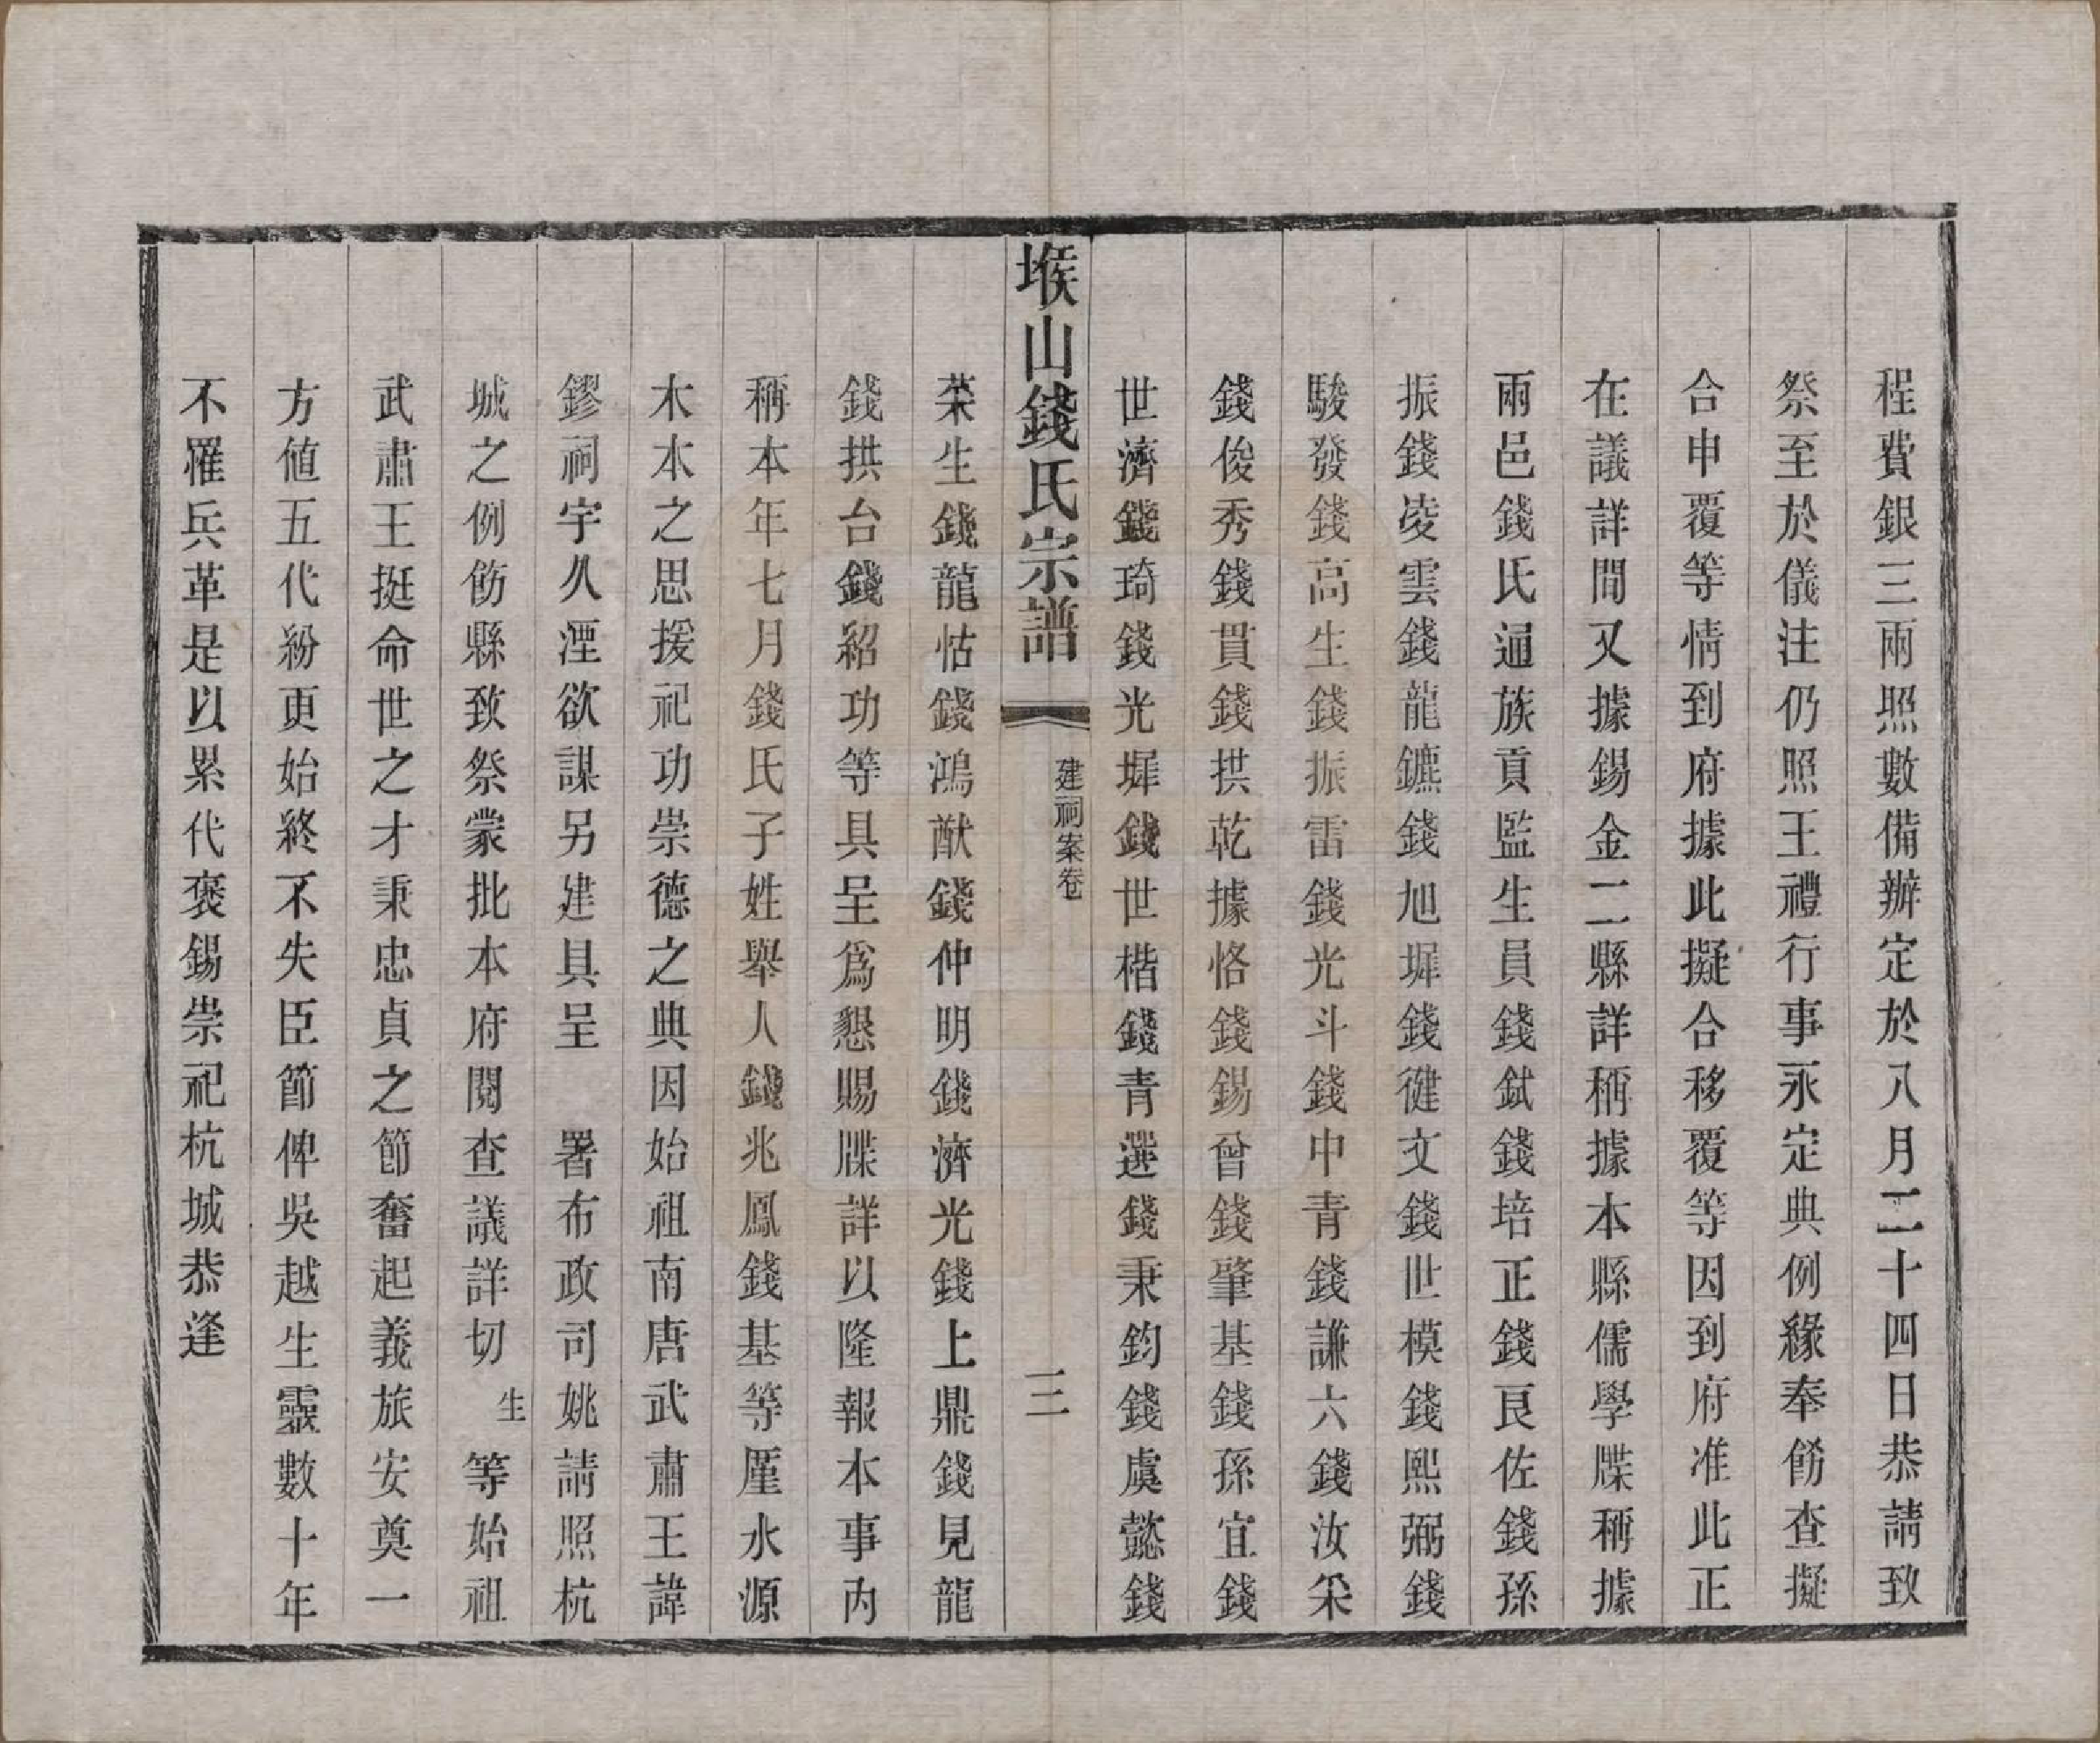 程費銀三兩照數備辦定於八月二十四日恭請致
祭至於儀注仍照王禮行事永定典例緣奉飭查擬
合申覆等情到府據此擬合移覆等因到府准此正
在議詳間又據錫金二縣詳稱據本縣儒學牒稱據
兩邑錢氏通族貢監生員錢錻錢培正錢艮佐錢孫
振錢凌雲錢龍鑣錢旭墀錢健文錢世模錢熙弼錢
駿發錢高生錢振雷錢光斗錢中青錢謙六錢汝采
錢俊秀錢貫錢拱乾據恪錢錫曾錢肇基錢孫宜錢
世濟錢琦錢光墀錢世楷錢青選錢秉鈞錢虞懿錢
堠山錢氏宗譜 建祠案卷 三
榮生錢龍怙錢鴻猷錢仲明錢濟光錢上鼎錢見龍
錢拱台錢紹功等具呈爲懇賜牒詳以隆報本事內
稱本年七月錢氏子姓舉人錢兆鳳錢基等厪水源
木本之思援祀功崇德之典因始祖南唐武肅王諱
鏐祠宇久湮欲謀另建具呈 署布政司姚請照杭
城之例飭縣致祭蒙批本府閱查議詳切生等始祖
武肅王挺命世之才秉忠貞之節奮起義旅安奠一
方値五代紛更始終不失臣節俾吳越生靈數十年
不罹兵革是以累代褒錫崇祀杭城恭逢